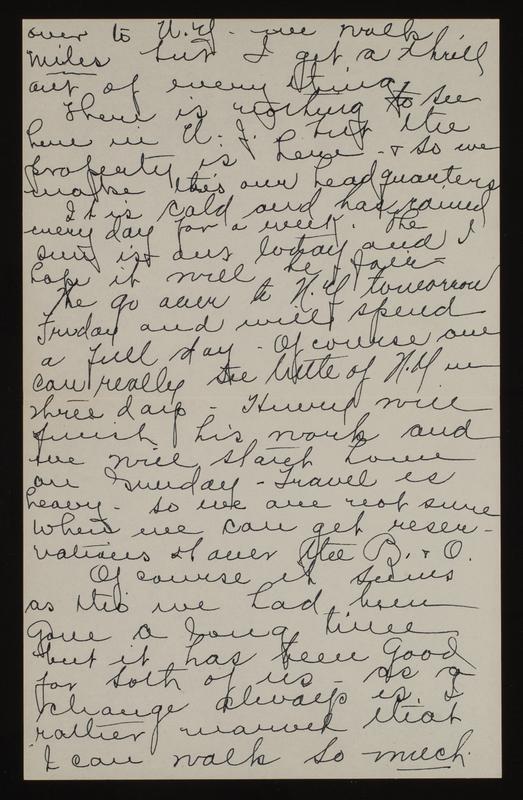 over to N.Y. - we walk
miles but I get a thrill
out of every thing.
There is nothing to see
here in N.J. but the
property is here - & so we
make this our headquarters
It is cold and has rained
every day for a week. The
sun is out today and I
hope it will be fair -
We go over to N.Y tomorrow
Friday and will spend
a full day - Of course one
can really see little of N.Y in
three days - Henry will
finish his work and
we will start home
on Sunday - Travel is
heavy - so we are not sure
when we can get reser-
vations over the B. & O.
Of course it seems
as tho we had been
gone a long time
but it has been good
for both of us - as a
change always is. I
rather marvel that
I can walk so much.